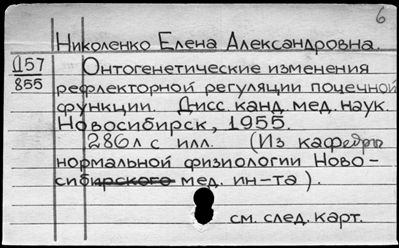 6
Николенко Елена Александровна.
Д57 Онтогенетические изменения
855 рефлекторной регуляции почечной
функции. Дисс. канд. мед. наук.
Новосибирск, 1955.
286л с илл. (Из кафедры
нормальной физиологии Ново-
сибирского мед. ин-та).
см. след. карт.